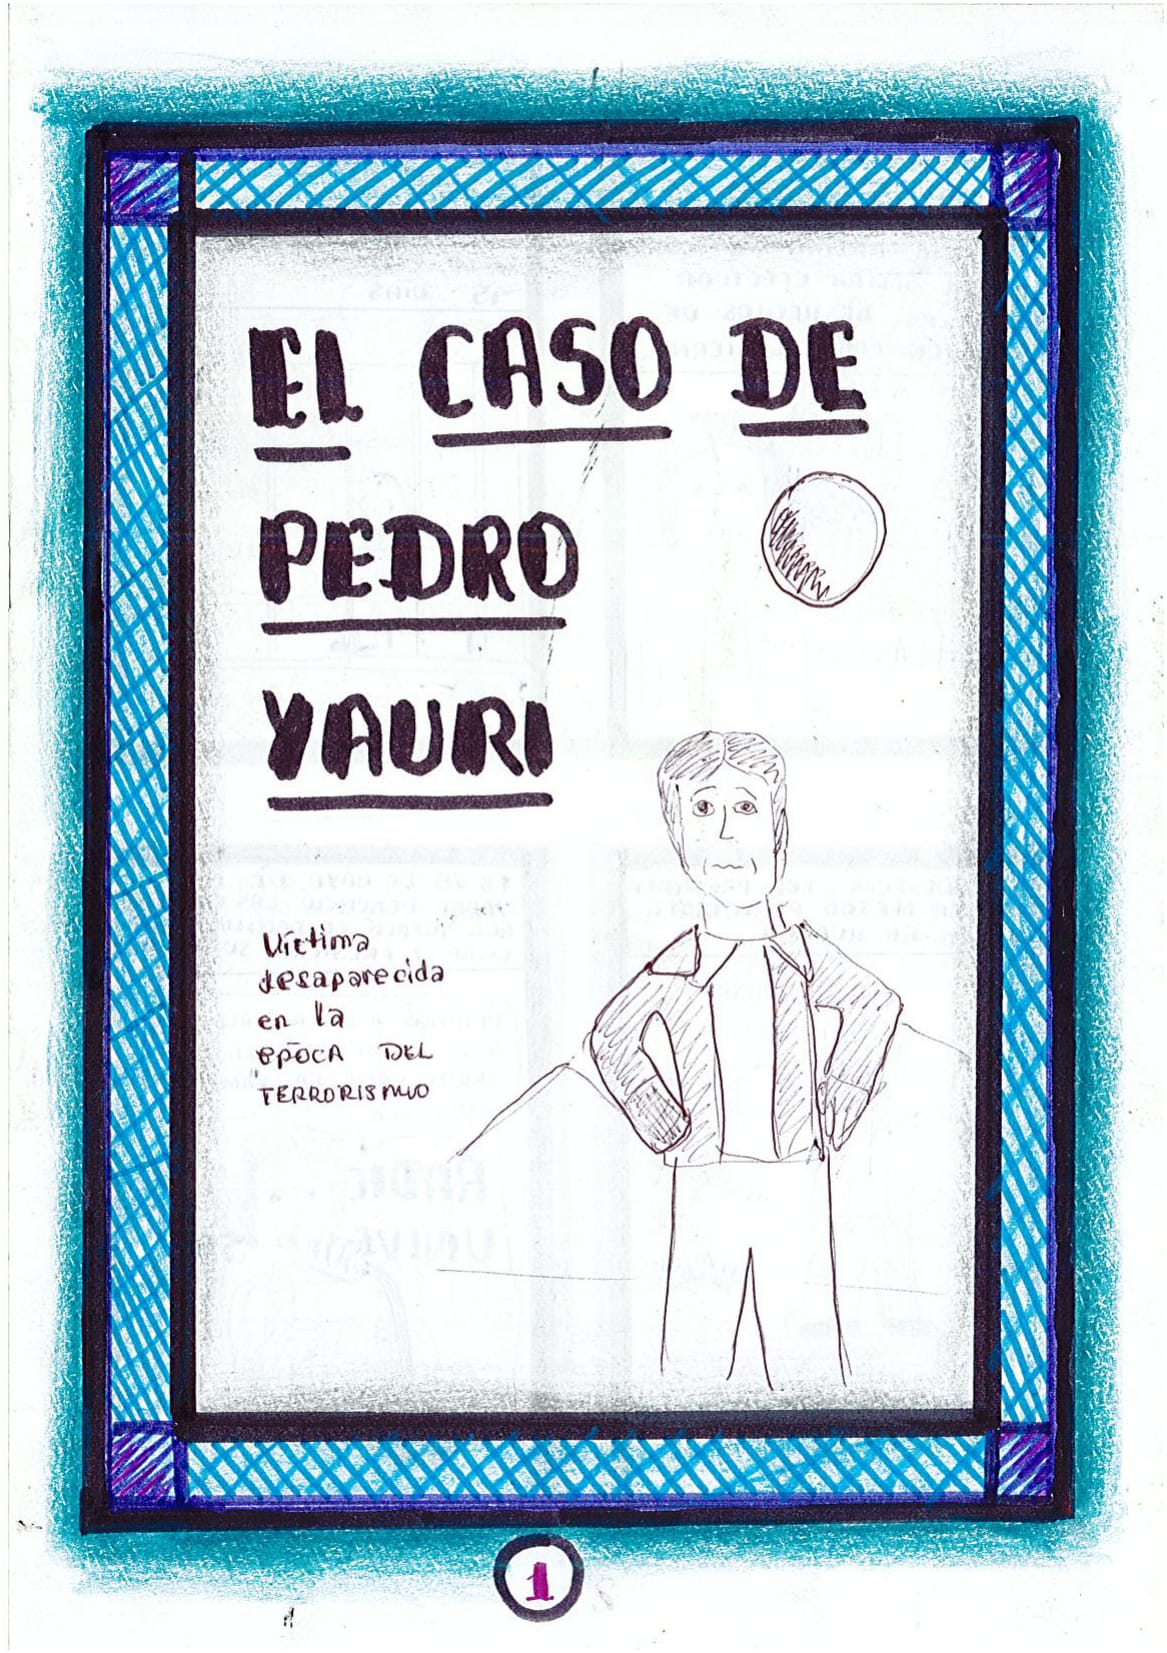 EL CASO DE
PEDRO
YAURI
Víctima
desaparecida
en la
EPOCA DEL
TERRORISMO
1